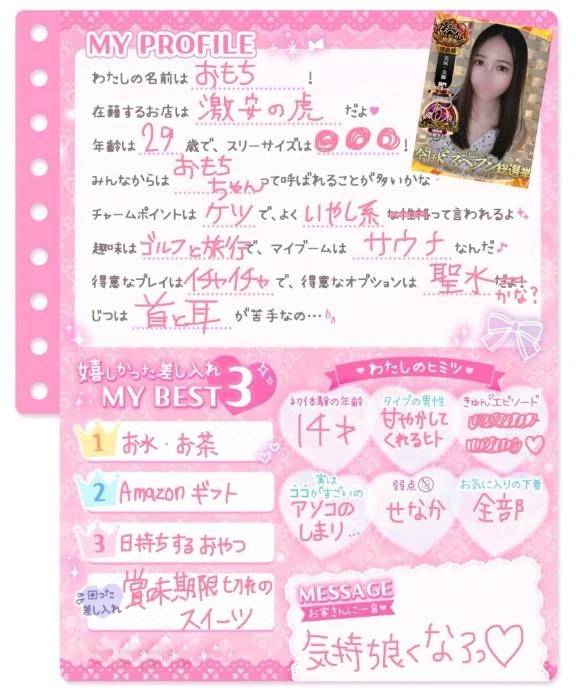 MY PROFILE
わたしの名前は おもち !
在籍するお店は 激安の虎 だよ♥
年齢は 29 歳で、スリーサイズは !
みんなからは おもちちゃん って呼ばれることが多いかな
チャームポイントは ケツ で、よく いやし系 って言われるよ
趣味は ゴルフと旅行 で、マイブームは サウナ なんだ♪
得意なプレイは イチャイチャ で、得意なオプションは 聖水 かな?
じつは 首と耳 が苦手なの…
嬉しかった差し入れ
MY BEST 3
1 お水・お茶
2 Amazonギフト
3 日持ちするおやつ
困った差し入れ
賞味期限切れの
スイーツ
♥わたしのヒミツ♥
初体験の年齢
14才
タイプの男性
甘やかして
くれるヒト
きゅんエピソード
実は
ココがすごいの
アソコの
しまり…
弱点
せなか
お気に入りの下着
全部
MESSAGE
お客さんに一言♥
気持ち良くなろっ♡